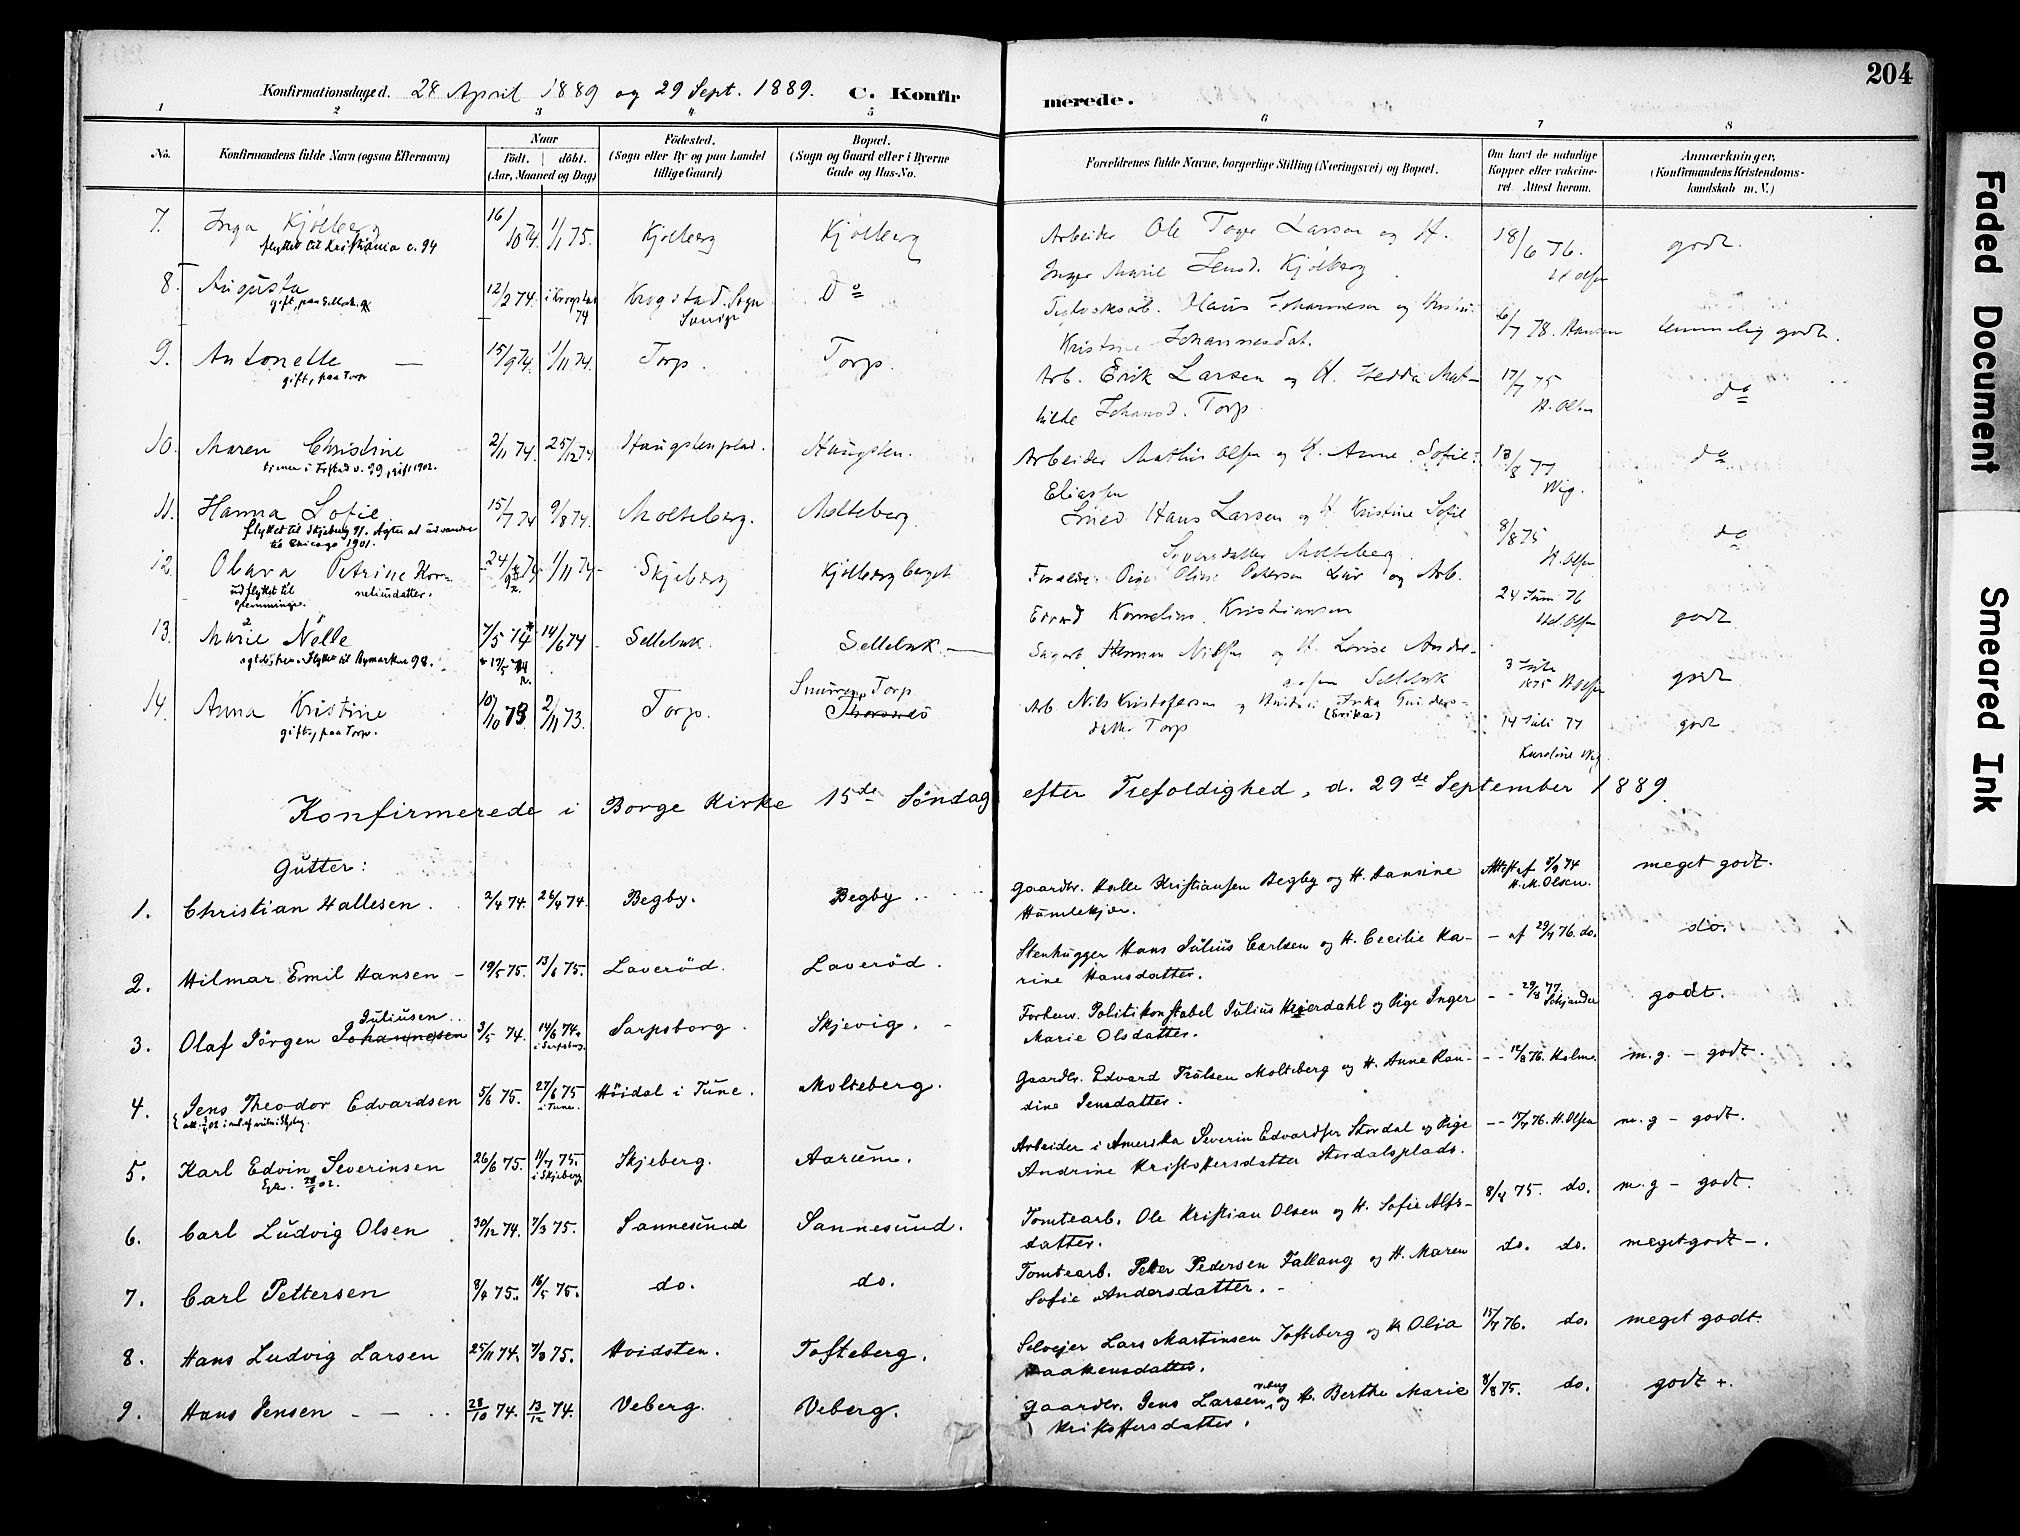 204
Konfirmationsdage d. 28 April 1889 og 29 Sept. 1889. C. Konfirmerede.
1 2 3 4 5 6 7 8
No. Konfirmandens fulde Navn (ogsaa Efternavn) Naar födt. döbt. (Aar, Maaned og Dag) Födested. (Sogn eller By og paa Landet tillige Gaard) Bopæl. (Sogn og Gaard eller i Byerne Gade og Hus-No. Forældrenes fulde Navne, borgerlige Stilling (Næringsvei) og Bopæl. Om havt de naturlige Kopper eller vaccineret. Attest herom. Anmærkninger. (Konfirmandens Kristendomskundskab m. V.)
7. Inga Kjölberg 16/10 74. 1/1 75. Kjölberg Kjölberg Arbeider Ole Larsen og H. 18/6 76. godt.
flyttet til Kristiania c. 94 Inger Marie Jensd. Kjölberg
8. Augusta 12/2 74. i Krogstad 74 Krogstad Sogn Do Johannesen og 6/7 78. Hansen temmelig godt.
Kristine Johannesdat.
9. Antonette — 15/9 74. 1/11 74. Torp. Torp. Arb. Erik Larsen og H. Hedda Mat- 17/7 75 do
gift, paa Torp hilde Johansd. Torp. H. Olsen
10. Maren Christine 2/11 74. 25/12 74 Haugstenplad. Haugsten. Arbeider Mathis Olsen og H. Anne Sofie 13/8 77 do
Eliassen Wig.
11. Hanna Sofie 15/7 74 9/8 74. Molteberg. Molteberg. Smed Hans Larsen og H. Kristine Sofie 8/8 75 do
flyttet til Skjeberg 91. Agter at udvandre til Chicago 1901. Siversdatter Molteberg. H. Olsen
12. Olava Petrine Kor- 1/11 74 Skjeberg Kjölbergberget Pige Oline Petersen og Arb. 24 Juni 76 godt
udflyttet til neliusdatter. Kornelius Kristiansen
13. Marie Nölle 7/5 74* 14/6 74 Sellebak Sellebak. — Herman Nilsen og H. Lovise Andre- 3 Juli 1875 godt
Sellebak
14. Anna Kristine 10/10 73 2/11 73. Torp. Torp Arb. Nils Kristofersen og (Erika) 14 Juli 77 godt
gift, paa Torp. Thorsnes datter Torp Karoline Wig.
Konfirmerede i Borge Kirke 15de Söndag efter Trefoldighed, d. 29de September 1889.
Gutter:
1. Christian Hallesen. 2/4 74. 26/4 74. Begby. Begby.. Gaardbr. Halle Kristiansen Begby og H. Hansine Attest af 5/9 74 meget godt.
Humlekjær. H. M. Olsen.
2. Hilmar Emil Hansen — 19/5 75. 13/6 75. Laveröd. Laveröd. Stenhugger Hans Julius Carlsen og H. Cecilie Ka- — af 29/7 76. do. do.
rine Hansdatter.
Juliusen..
3. Olaf Jörgen Johannesen 3/5 74. 14/6 74. i Sarpsborg. Sarpsborg. Skjevig. — Forhenv. Politikonstabel Julius Kreierdahl og Pige Inger - - 29/8 77. godt.
Marie Olsdatter.
4. Jens Theodor Edvardsen 5/6 75. 27/6 75 i Tune. Höidal i Tune. Molteberg. Gaardbr. Edvard Trulsen Molteberg og H. Anne Ran- - - 12/8 76. Holm. m.g. — godt.
dine Jensdatter.
5. Karl Edvin Severinsen 26/6 75. 11/7 75. i Skjeberg. Skjeberg. Aarum. Arbeider i Amerika Severin Edvardsen Stordal og Pige - - 17/7 76. H. Olsen m.g — godt.
Andrine Kristoffersdatter Stordalsplads.
6. Carl Ludvig Olsen 30/12 74. 7/3 75. Sannesund Sannesund. Tomtearb. Ole Kristian Olsen og H. Sofie Alfs- 8/8 75. do. m.g — godt.
datter.
7. Carl Pettersen 8/4 75. 16/5 75. do. do. Tomtearb. Petter Pedersen Fallang og H. Maren do. do. meget godt —.
Sofie Andersdatter. —
8. Hans Ludvig Larsen 25/11 74. 7/3 75. Hvidsten. Tofteberg. Selveier Lars Martinsen Tofteberg og H Olia 15/7 76. do. meget godt.
Haakensdatter.
9. Hans Jensen — — .. 28/10 74. 13/12 74. Veberg. Veberg. Gaardbr. Jens Larsen Veberg og H. Berthe Marie 8/8 75. do. godt +.
Kristoffersdatter.
Faded Document
Smeared Ink